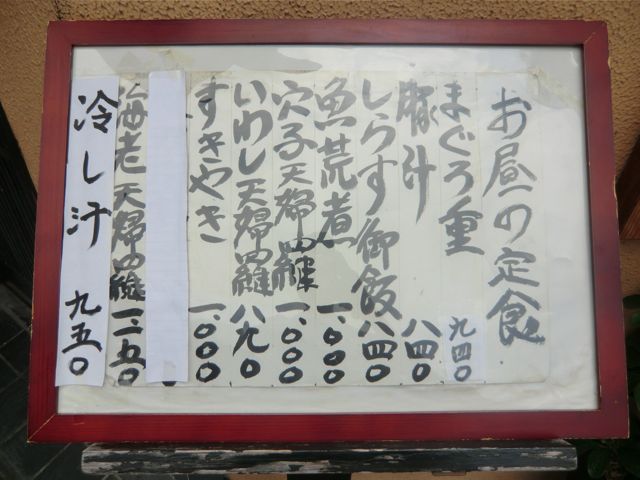 お昼の定食
まぐろ重 九四〇
豚汁 八四〇
しらす御飯 八四〇
魚荒煮 一、〇〇〇
穴子天婦羅 一、〇〇〇
いわし天婦羅 八九〇
すきやき 一、〇〇〇
海老天婦羅 一、一五〇
冷し汁 九五〇